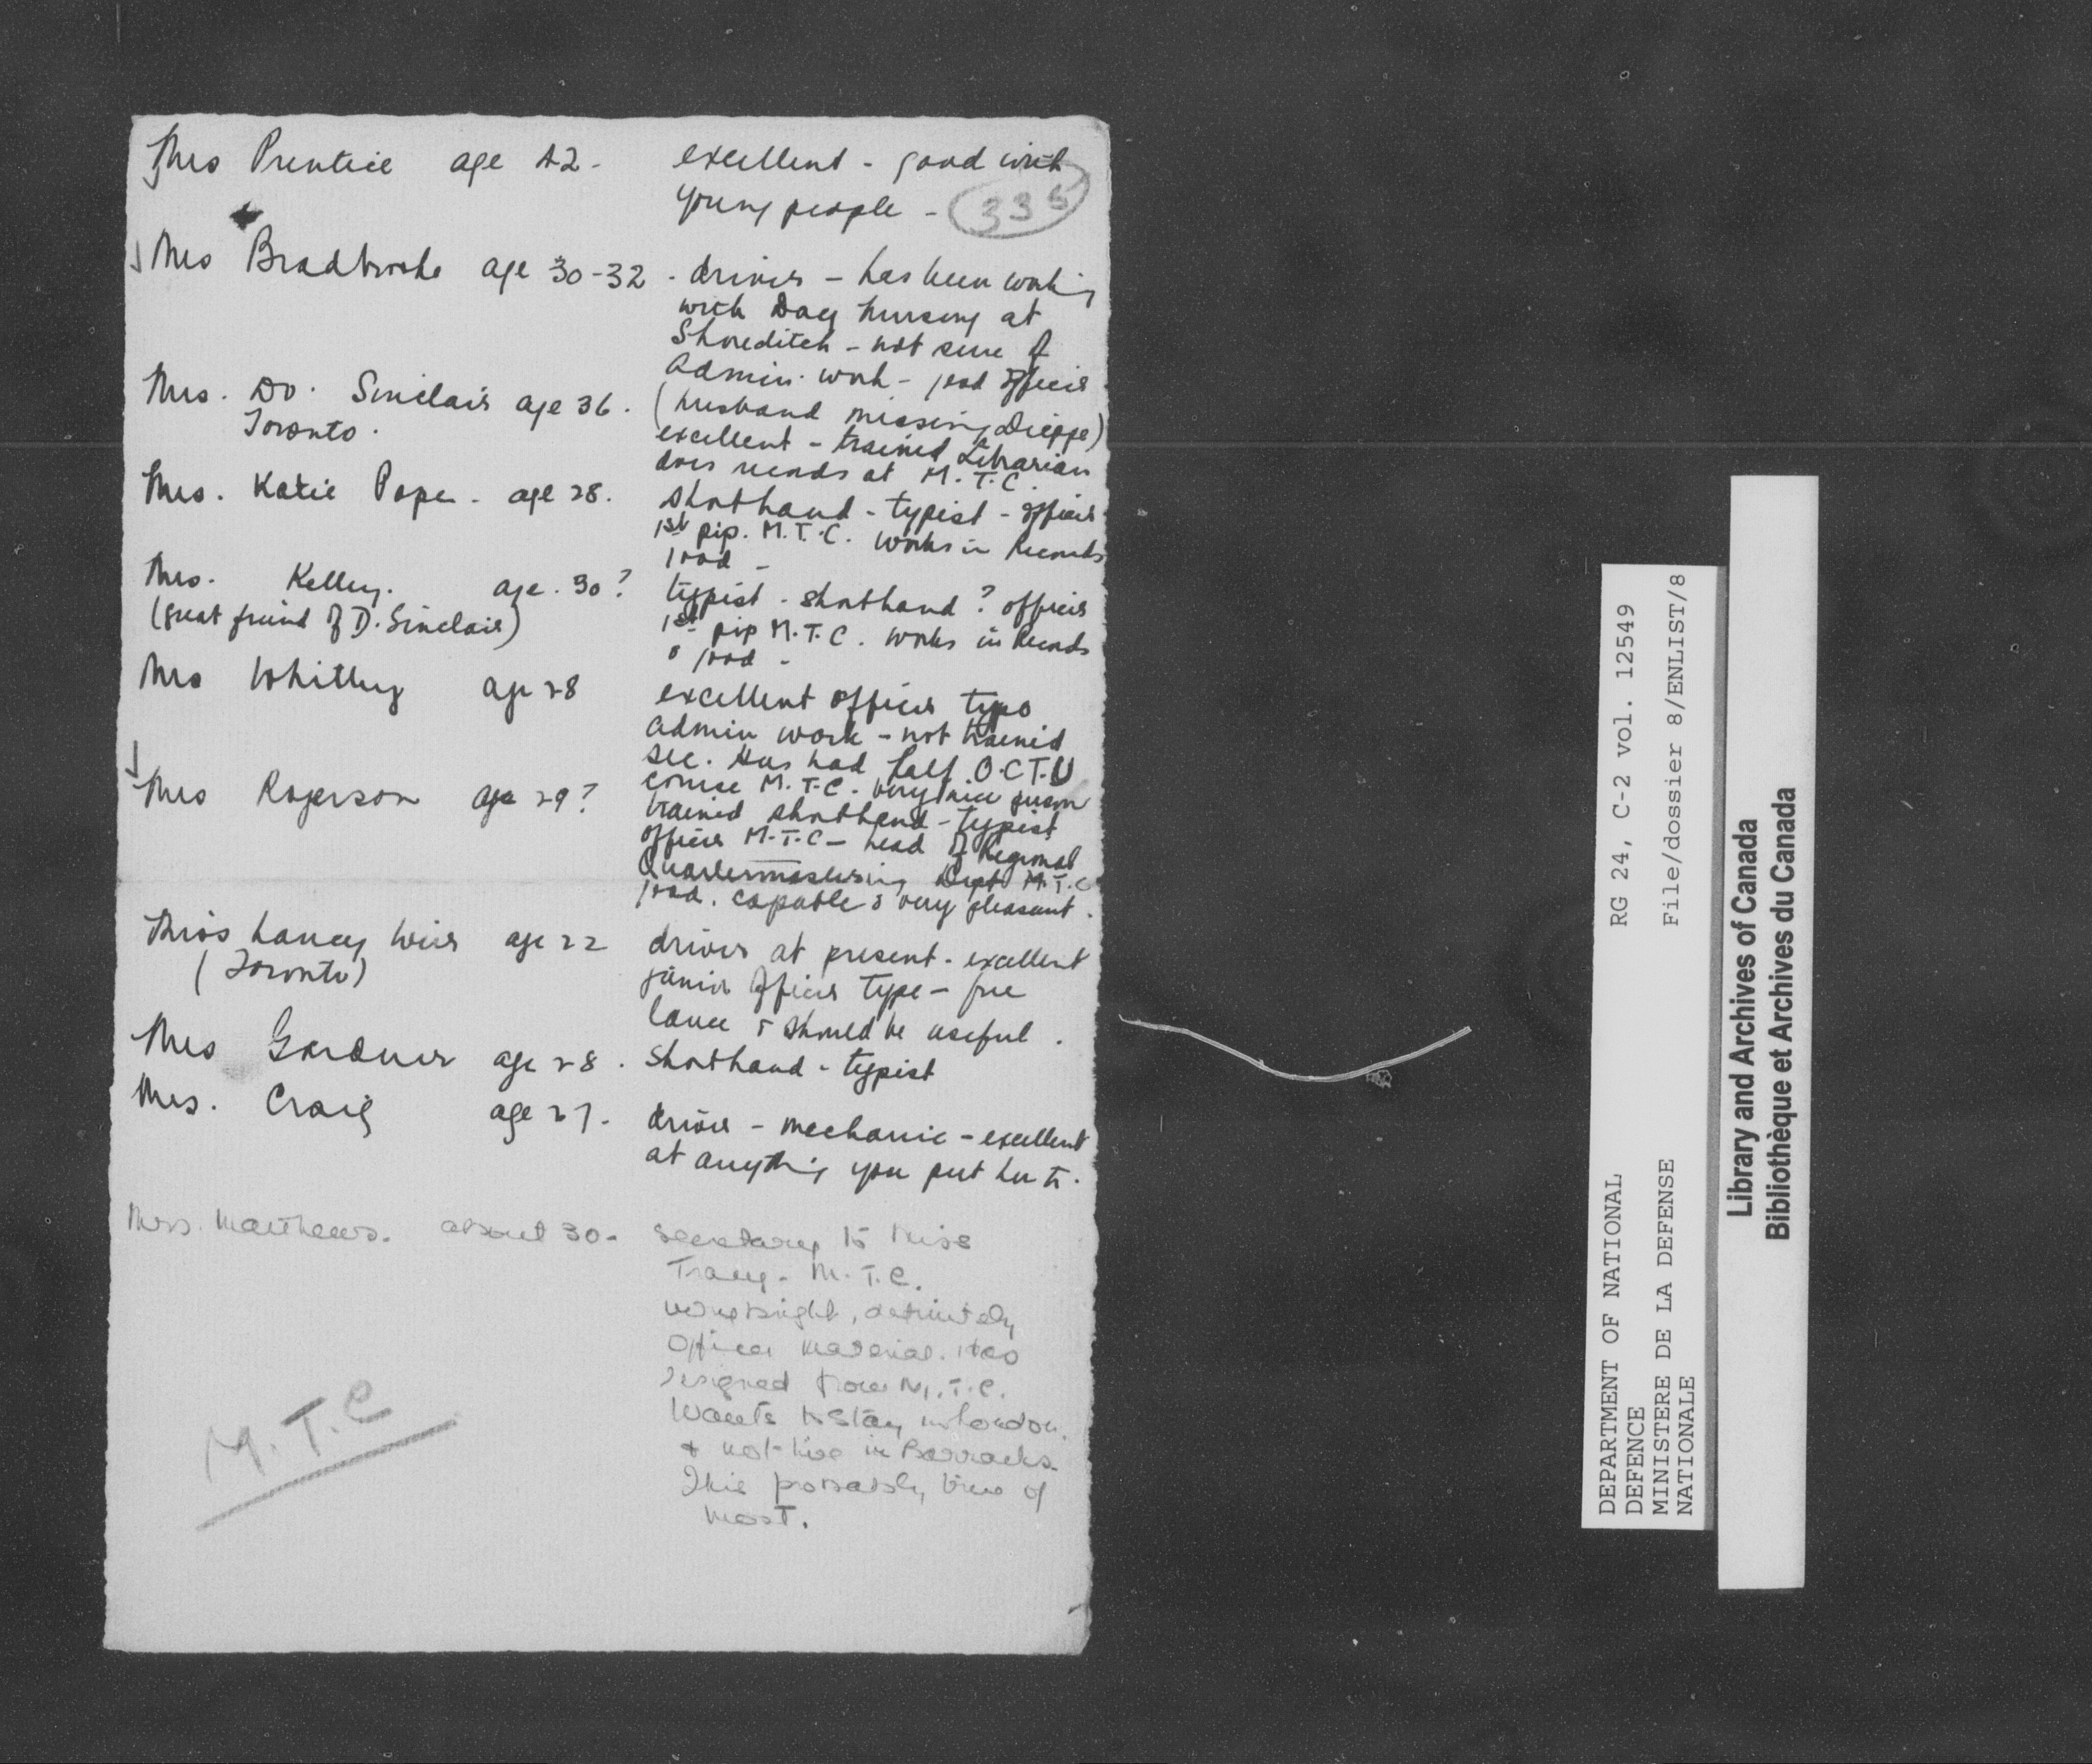 Mrs Prentice age 42 - excellent - good with
young people -
335
Mrs Bradbrooke age 30-32 - driver - has been working
with Day Nursery at
Shoreditch - not sure of
Admin. work - good officer
Mrs. Do. Sinclair age 36. (husband missing Dieppe)
Toronto. excellent - trained Librarian
does records at M.T.C.
Mrs. Katie Pope - age 28. shorthand - typist - officer
1st pip. M.T.C. works in Records
good -
Mrs. Kelley. age. 30? typist - shorthand? officer
(great friend of D. Sinclair) 1st pip M.T.C. works in Records
good -
Mrs Whitley age 28 excellent officer type
admin work - not trained
sec. Has had half O.C.T.U
course M.T.C. very nice person
Mrs Rogerson age 29? trained shorthand - typist
officer M.T.C - head of Regional
Quartermastering Dept M.T.C
good. capable & very pleasant.
Miss Nancy Weir age 22 driver at present - excellent
(Toronto) junior officer type - free
lance & should be useful.
Mrs Gardner age 28. shorthand - typist
Mrs. Craig age 27. driver - mechanic - excellent
at anything you put her to.
Mrs. Matthews. about 30 - secretary to Miss
Tracy - M.T.C.
very bright, definitely
Officer material. Has
resigned from M.T.C.
Wants to stay in London.
& not live in Barracks.
This probably true of
most.
M.T.C
DEPARTMENT OF NATIONAL RG 24, C-2 vol. 12549
DEFENCE
MINISTERE DE LA DEFENSE File/dossier 8/ENLIST/8
NATIONALE
Library and Archives of Canada
Bibliothèque et Archives du Canada